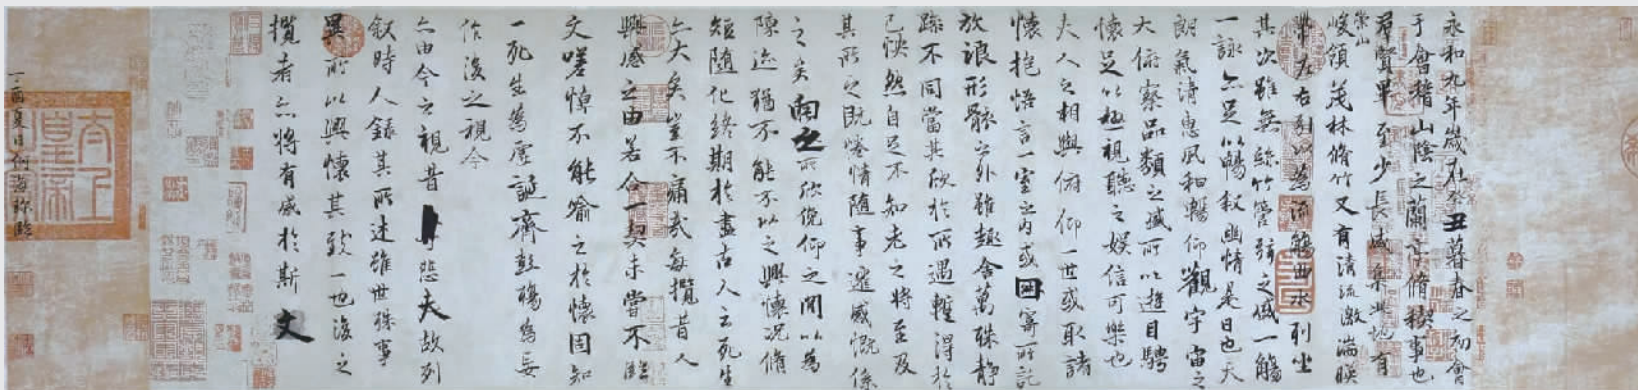 永和九年歲在癸丑暮春之初會
于會稽山陰之蘭亭脩稧事也
羣賢畢至少長咸集此地有
崇山
峻領茂林脩竹又有清流激湍暎
帶左右引以為流觴曲水列坐
其次雖無絲竹管弦之盛一觴
一詠亦足以暢敘幽情是日也天
朗氣清惠風和暢仰觀宇宙之
大俯察品類之盛所以遊目騁
懷足以極視聽之娛信可樂也
夫人之相與俯仰一世或取諸
懷抱悟言一室之內或因寄所託
放浪形骸之外雖趣舍萬殊靜
躁不同當其欣於所遇暫得於
己怏然自足不知老之將至及
其所之既惓情隨事遷感慨係
之矣向之所欣俛仰之閒以為
陳迹猶不能不以之興懷況脩
短隨化終期於盡古人云死生
亦大矣豈不痛哉每攬昔人
興感之由若合一契未嘗不臨
文嗟悼不能喻之於懷固知
一死生為虛誕齊彭殤為妄
作後之視今
亦由今之視昔悲夫故列
敘時人錄其所述雖世殊事
異所以興懷其致一也後之
攬者亦將有感於斯文
丁酉夏日何海臨